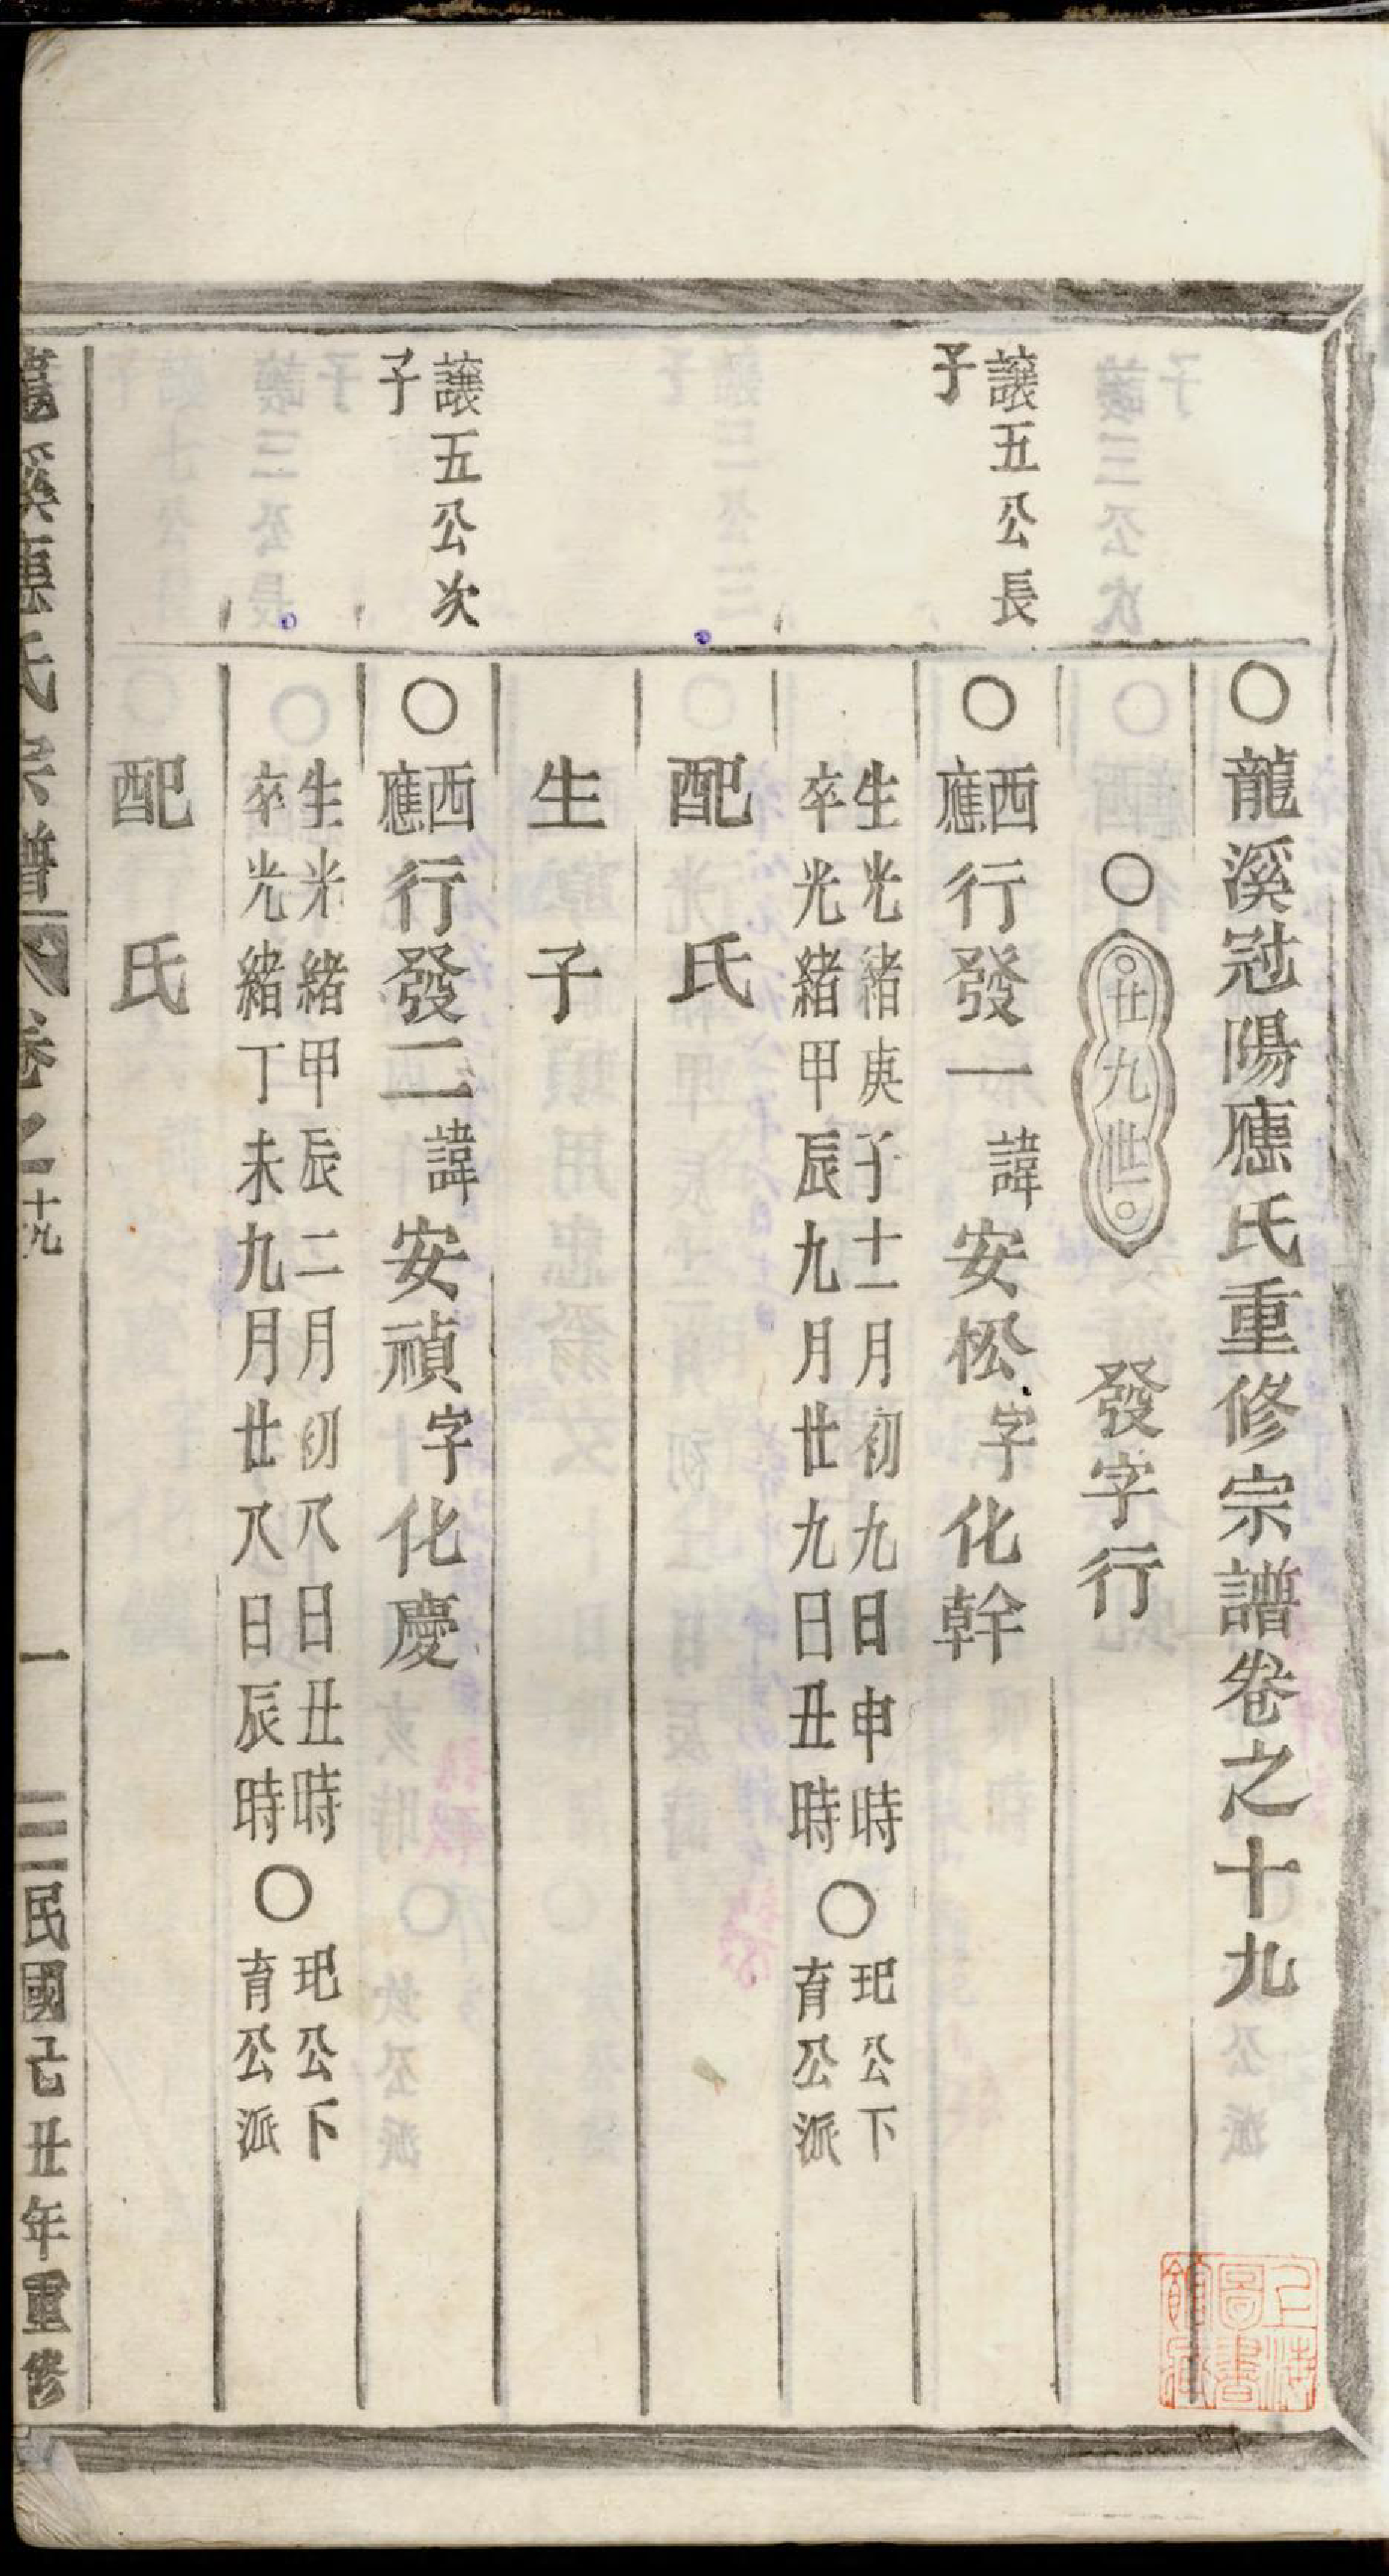 ○龍溪冠陽應氏重修宗譜卷之十九
○○廿九世○ 發字行
譲五公長
子
○西應行發一諱安松字化幹
生光緒庚子十一月初九日申時
卒光緒甲辰九月廿九日丑時
○玘公下
育公派
配氏
生子
譲五公次
子
○西應行發二諱安禎字化慶
生光緒甲辰二月初八日丑時
卒光緒丁未九月廿八日辰時
○玘公下
育公派
配氏
龍溪應氏宗譜 卷之十九 一 民國己丑年重修
上海
圖書
館藏